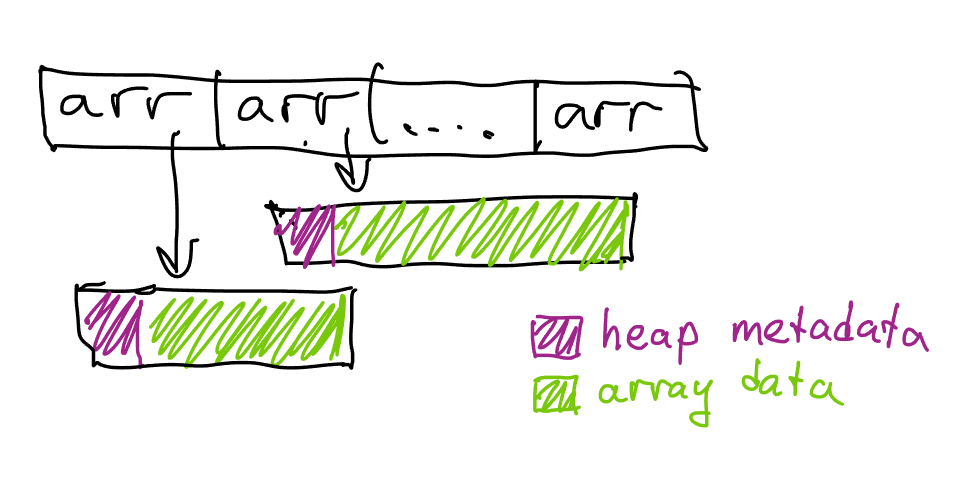 arr arr .... arr
heap metadata
array data